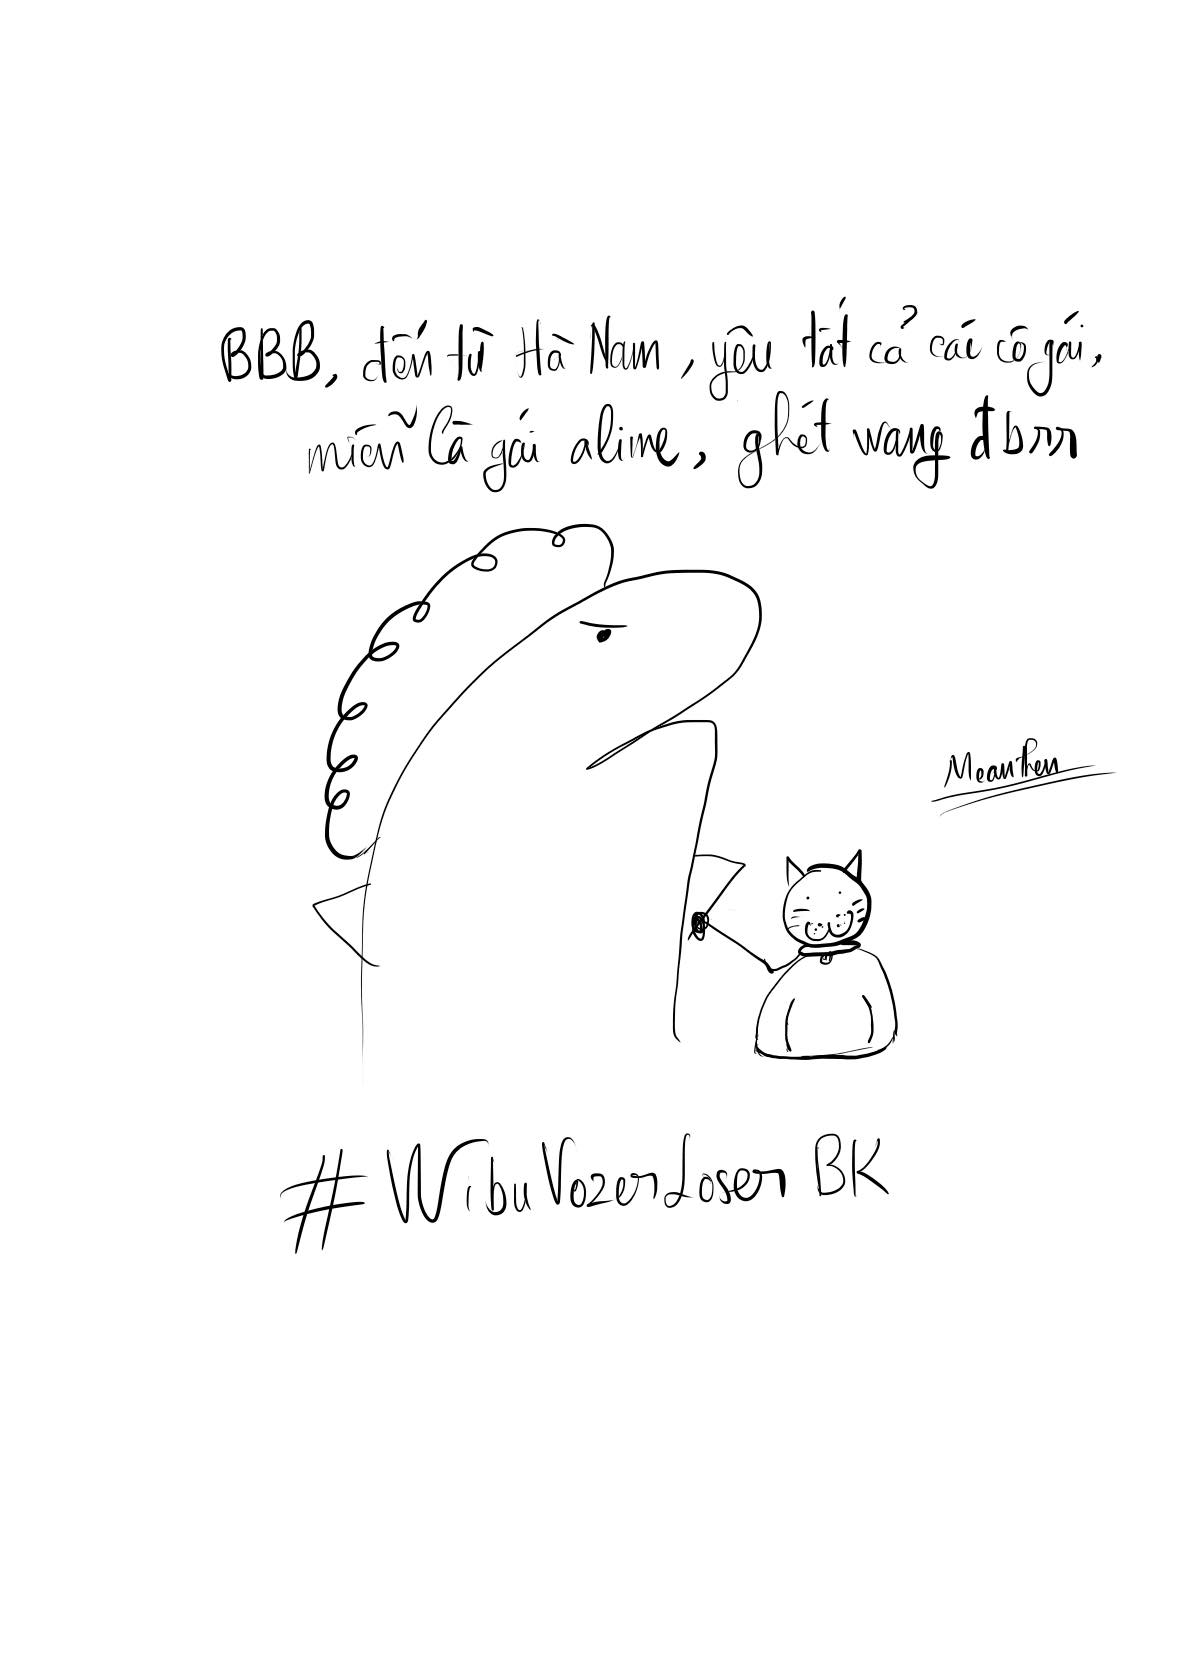 BBB, đến từ Hà Nam, yêu tất cả các cô gái,
miễn là gái alime, ghét wang đbrr
Meanthen
#WibuVozerLoserBK